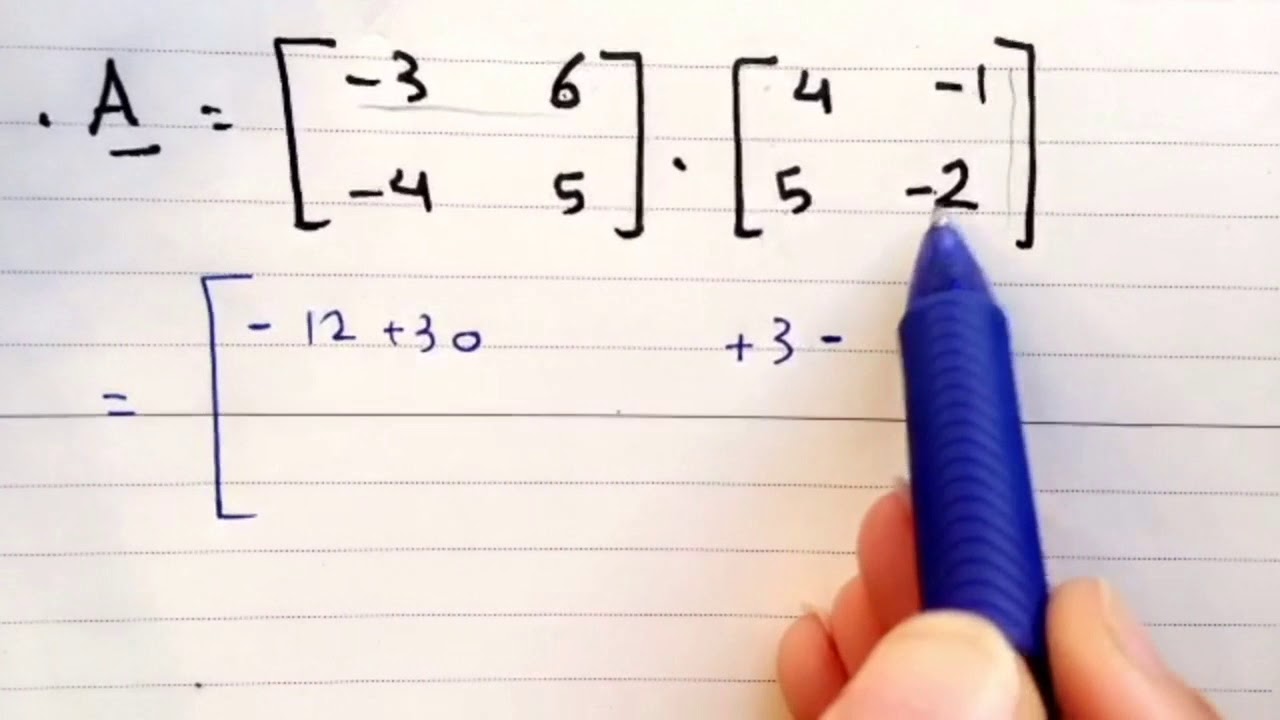 . A = [ -3 6 ] . [ 4 -1 ]
[ -4 5 ] [ 5 -2 ]
= [ - 12 +30 +3 -